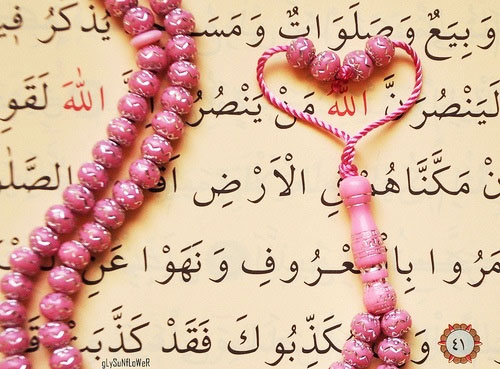 وَبِيَعٌ وَصَلَوَاتٌ وَمَسَـ يُذْكَرُ فِيـ
لَيَنْصُرَنَّ اللهُ مَنْ يَنْصُرُ اللهَ لَقَوِ
نْ مَكَّنَّاهُمْ فِي الْاَرْضِ اَقَـ الصَّلٰو
مَرُوا بِالْمَعْرُوفِ وَنَهَوْا عَنِ
وَ يُكَذِّبُوكَ فَقَدْ كَذَّبَتْ قَـ
٤١
gLySuNfLoWeR